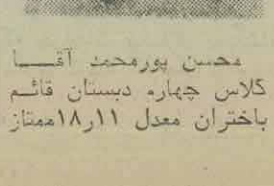 محسن پورمحمد آقـــا
کلاس چهارم دبستان قائم
باختران معدل ۱۸٫۱۱ ممتاز